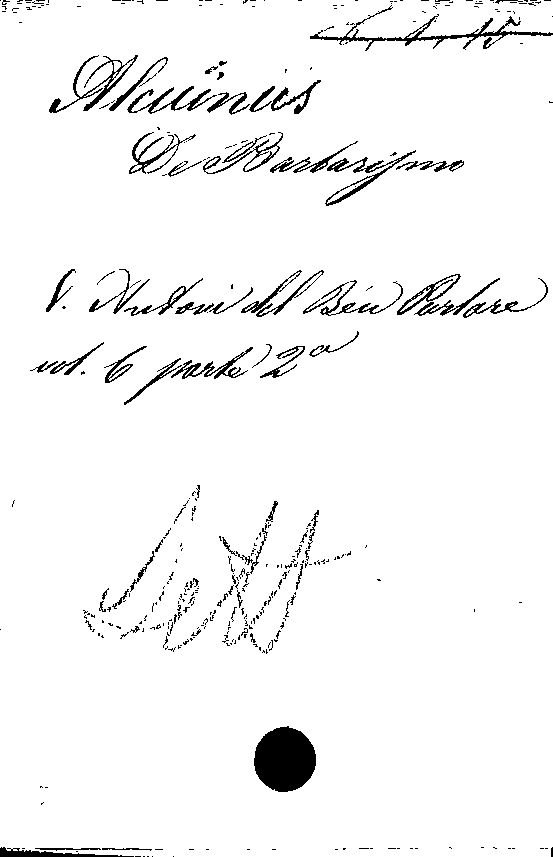 6, 1, 15
Alcuinus
De Barbarismo
V. Autori del Ben Parlare
vol. 6 parte 2a
Lett